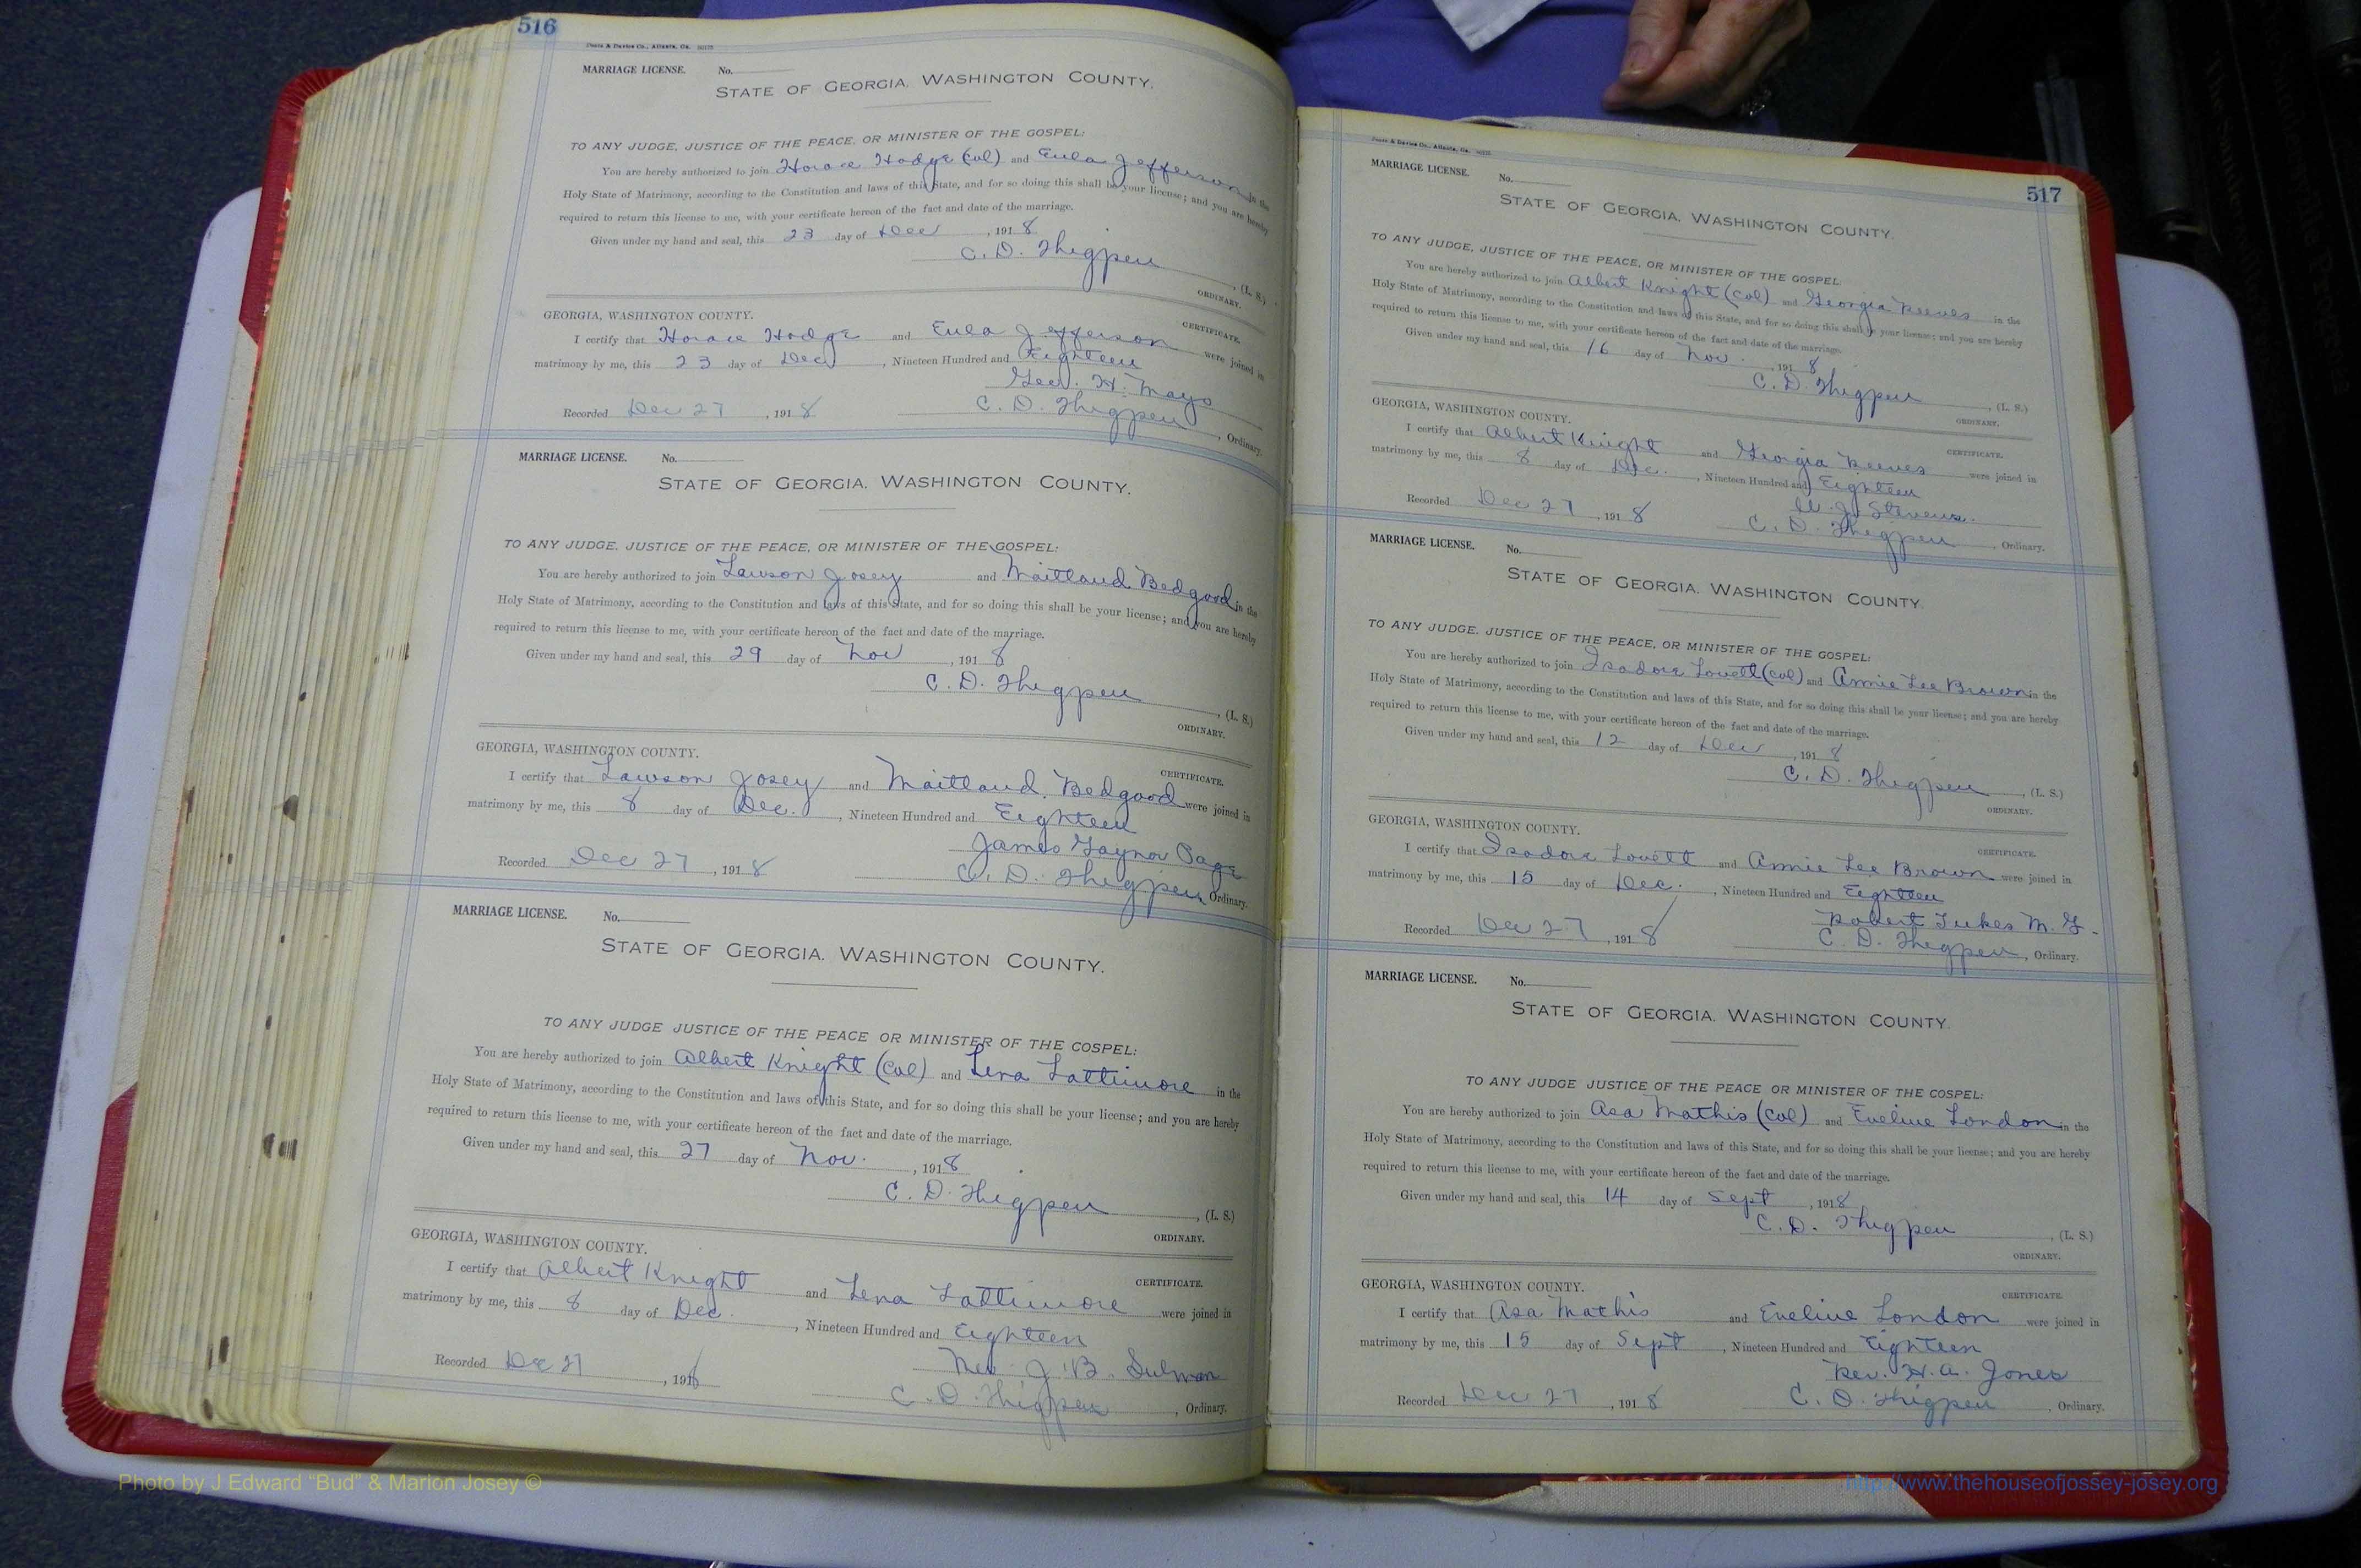 516
MARRIAGE LICENSE. No.
STATE OF GEORGIA, WASHINGTON COUNTY.
TO ANY JUDGE, JUSTICE OF THE PEACE, OR MINISTER OF THE GOSPEL:
You are hereby authorized to join Horace Hodge (Col) and Eula Jefferson in the
Holy State of Matrimony, according to the Constitution and laws of this State, and for so doing this shall be your license; and you are hereby
required to return this license to me, with your certificate hereon of the fact and date of the marriage.
Given under my hand and seal, this 23 day of Dec, 1918
C. D. Thigpen, (L. S.)
ORDINARY.
GEORGIA, WASHINGTON COUNTY. CERTIFICATE.
I certify that Horace Hodge and Eula Jefferson were joined in
matrimony by me, this 23 day of Dec, Nineteen Hundred and Eighteen
Geo. H. Mayo
Recorded Dec 27, 1918 C. D. Thigpen, Ordinary.
MARRIAGE LICENSE. No.
STATE OF GEORGIA. WASHINGTON COUNTY.
TO ANY JUDGE. JUSTICE OF THE PEACE, OR MINISTER OF THE GOSPEL:
You are hereby authorized to join Lawson Josey and Maitland Bedgood in the
Holy State of Matrimony, according to the Constitution and laws of this State, and for so doing this shall be your license; and you are hereby
required to return this license to me, with your certificate hereon of the fact and date of the marriage.
Given under my hand and seal, this 29 day of Nov, 1918
C. D. Thigpen, (L. S.)
ORDINARY.
GEORGIA, WASHINGTON COUNTY. CERTIFICATE.
I certify that Lawson Josey and Maitland Bedgood were joined in
matrimony by me, this 8 day of Dec., Nineteen Hundred and Eighteen
James Gaynor Page
Recorded Dec 27, 1918 C. D. Thigpen, Ordinary.
MARRIAGE LICENSE. No.
STATE OF GEORGIA. WASHINGTON COUNTY.
TO ANY JUDGE JUSTICE OF THE PEACE OR MINISTER OF THE GOSPEL:
You are hereby authorized to join Albert Knight (Col) and Lena Lattimore in the
Holy State of Matrimony, according to the Constitution and laws of this State, and for so doing this shall be your license; and you are hereby
required to return this license to me, with your certificate hereon of the fact and date of the marriage.
Given under my hand and seal, this 27 day of Nov., 1918
C. D. Thigpen, (L. S.)
ORDINARY.
GEORGIA, WASHINGTON COUNTY. CERTIFICATE.
I certify that Albert Knight and Lena Lattimore were joined in
matrimony by me, this 8 day of Dec., Nineteen Hundred and Eighteen
Rev. J. B.
Recorded Dec 27, 191 C. D. Thigpen, Ordinary.
517
MARRIAGE LICENSE. No.
STATE OF GEORGIA. WASHINGTON COUNTY.
TO ANY JUDGE, JUSTICE OF THE PEACE, OR MINISTER OF THE GOSPEL:
You are hereby authorized to join Albert Knight (Col) and Georgia Reeves in the
Holy State of Matrimony, according to the Constitution and laws of this State, and for so doing this shall be your license; and you are hereby
required to return this license to me, with your certificate hereon of the fact and date of the marriage.
Given under my hand and seal, this 16 day of Nov., 1918
C. D. Thigpen, (L. S.)
ORDINARY.
GEORGIA, WASHINGTON COUNTY. CERTIFICATE.
I certify that Albert Knight and Georgia Reeves were joined in
matrimony by me, this 8 day of Dec., Nineteen Hundred and Eighteen
J. Stevens.
Recorded Dec 27, 1918 C. D. Thigpen, Ordinary.
MARRIAGE LICENSE. No.
STATE OF GEORGIA. WASHINGTON COUNTY.
TO ANY JUDGE. JUSTICE OF THE PEACE, OR MINISTER OF THE GOSPEL:
You are hereby authorized to join Isadore Lovett (Col) and Annie Lee Brown in the
Holy State of Matrimony, according to the Constitution and laws of this State, and for so doing this shall be your license; and you are hereby
required to return this license to me, with your certificate hereon of the fact and date of the marriage.
Given under my hand and seal, this 12 day of Dec, 1918
C. D. Thigpen, (L. S.)
ORDINARY.
GEORGIA, WASHINGTON COUNTY. CERTIFICATE.
I certify that Isadore Lovett and Annie Lee Brown were joined in
matrimony by me, this 15 day of Dec., Nineteen Hundred and Eighteen
Robert Tukes M. G.
Recorded Dec 27, 1918 C. D. Thigpen, Ordinary.
MARRIAGE LICENSE. No.
STATE OF GEORGIA. WASHINGTON COUNTY.
TO ANY JUDGE JUSTICE OF THE PEACE OR MINISTER OF THE GOSPEL:
You are hereby authorized to join Asa Mathis (Col) and Eveline London in the
Holy State of Matrimony, according to the Constitution and laws of this State, and for so doing this shall be your license; and you are hereby
required to return this license to me, with your certificate hereon of the fact and date of the marriage.
Given under my hand and seal, this 14 day of Sept, 1918
C. D. Thigpen, (L. S.)
ORDINARY.
GEORGIA, WASHINGTON COUNTY. CERTIFICATE.
I certify that Asa Mathis and Eveline London were joined in
matrimony by me, this 15 day of Sept, Nineteen Hundred and Eighteen
Rev. H. A. Jones
Recorded Dec 27, 1918 C. D. Thigpen, Ordinary.
Photo by J Edward “Bud” & Marion Josey ©
http://www.thehouseofjossey-josey.org